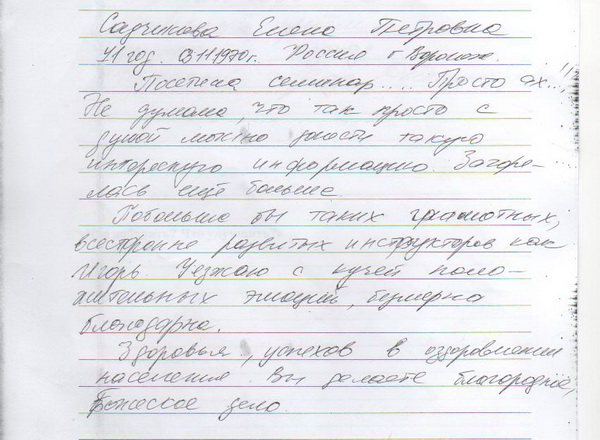 Садчикова Елена Петровна
41 год. 03.11.1970г. Россия г. Воронеж.
Посетила семинар.... Просто ах...!!
Не думала, что так просто с
душой можно донести такую
интересную информацию. Загоре-
лась ещё больше.
Побольше бы таких грамотных,
всесторонне развитых инструкторов как
Игорь Уезжаю с кучей поло-
жительных эмоций, безмерно
благодарна.
Здоровья, успехов в оздоровлении
населения. Вы делаете благородное,
Божеское дело.